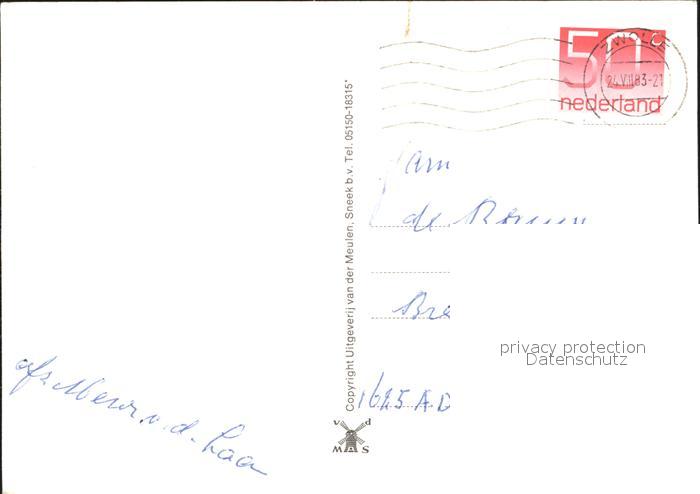 50 c
nederland
ZWOLLE
24.VIII.83-21
Fam
de
Bre
1625 AD
privacy protection
Datenschutz
Copyright Uitgeverij van der Meulen, Sneek b.v. Tel. 05150-18315*
v d
M A S
afz. Mevr. v. d. Laan